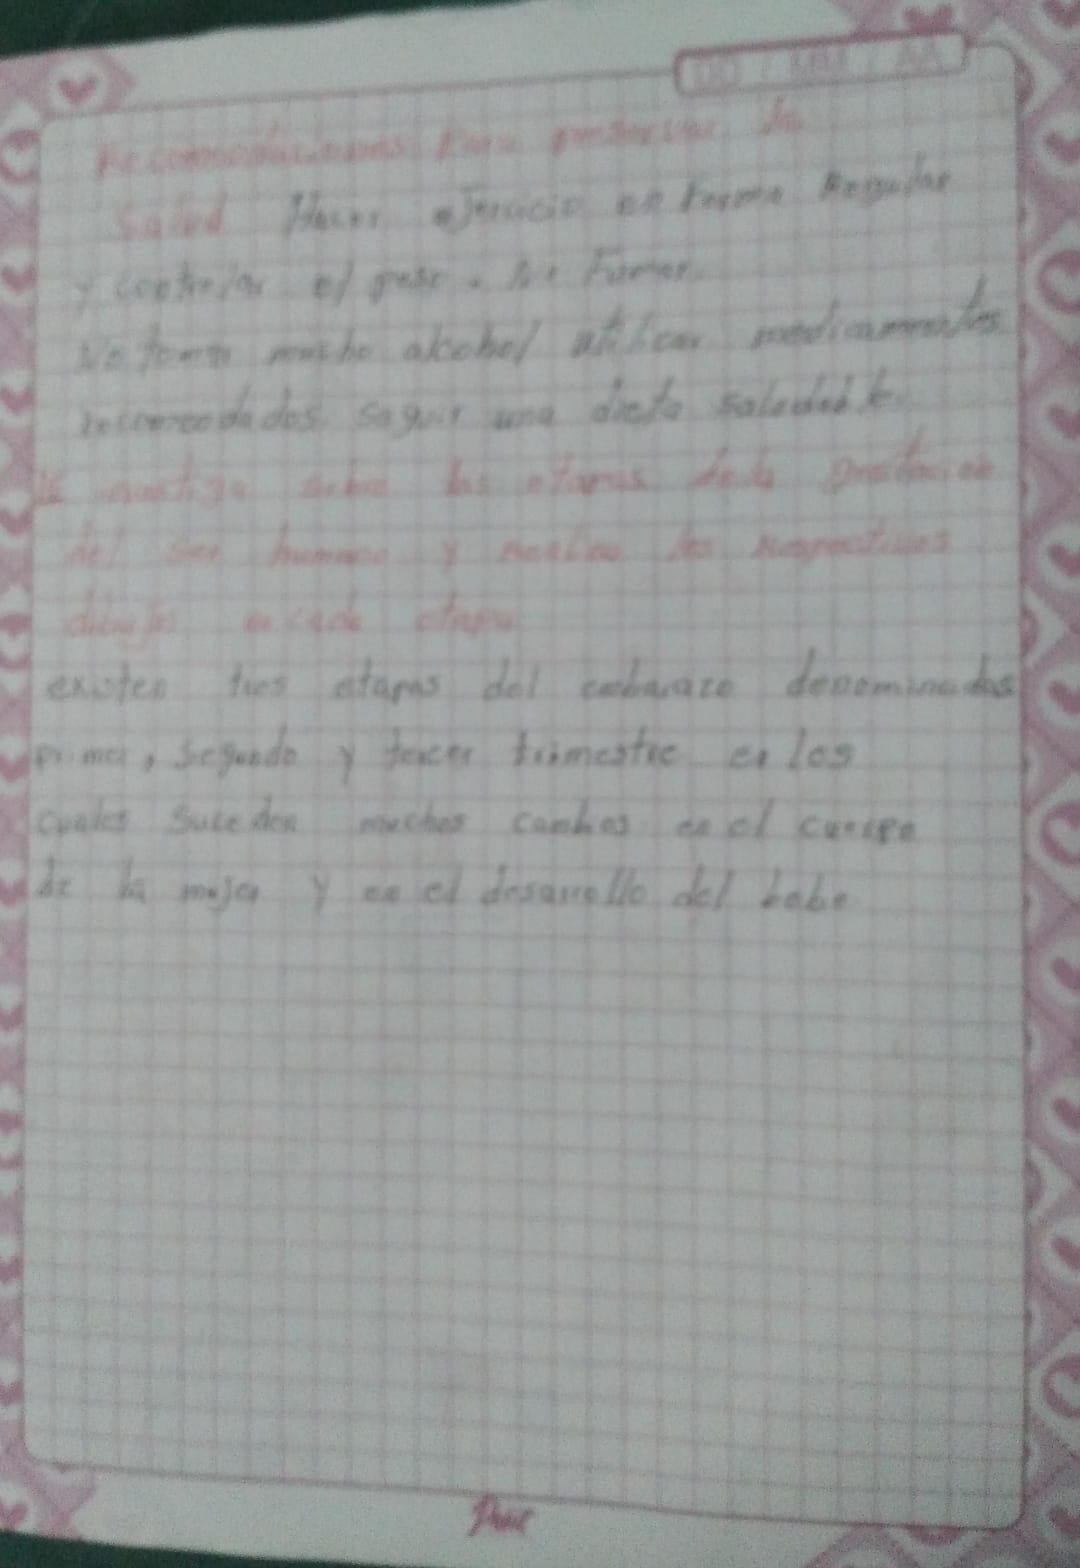 DD MM AA
Recomendaciones Para la
Salud Hacer ejercicio en Forma Regular
y controlar el peso. No Fumar.
No tomar mucho alcohol utilicar medicamentos
recomendados seguir una dieta saludable.
sobre las etapas de la gestacion
del ser humano y realiza los respectivos
dibujo en cada etapa
existen tres etapas del embarazo denominadas
primer, segundo y tercer trimestre en los
cuales suceden muchos cambios en el cuerpo
de la mujer y en el desarrollo del bebe